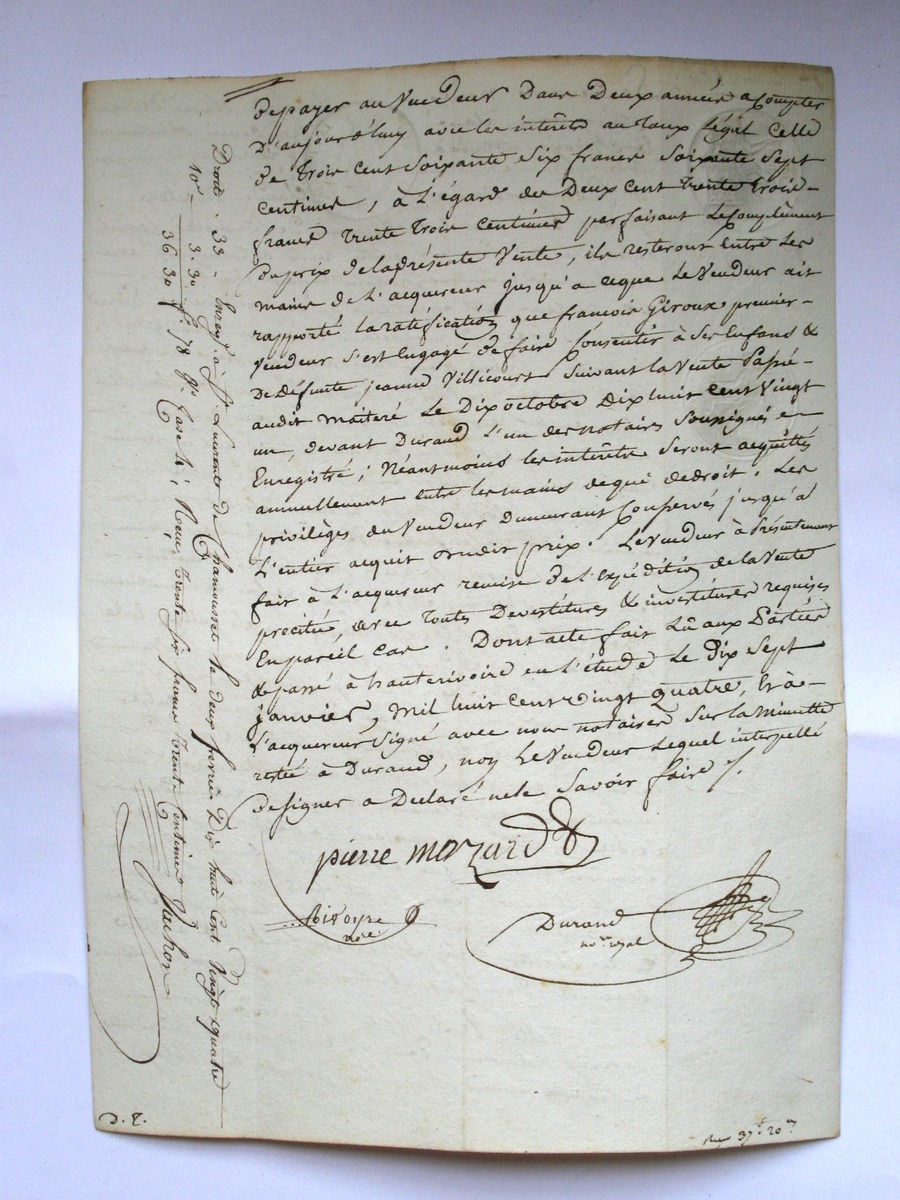 De payer au Vendeur Dans Deux années a Compter
D'aujourd'huy avec les intérêts au taux Légal Celle
De trois Cent Soixante Six francs Soixante Sept
Centimes, à L'égard des Deux Cent trente trois
francs trente trois Centimes parfaisant Le Complément
Du prix de la présente Vente, ils resteront Entre Les
mains de L'acquereur jusqu'a ceque Le Vendeur ait
rapporté la ratification que françois Giroux premier
Vendeur s'est Engagé de faire Consentir à Ses Enfans &
De Défunte jeanne Villicourt Suivant la Vente Passée
audit Maiteré Le Dix octobre Dix huit Cent Vingt
un, devant Durand L'un des Notaires Soussignés
Enregistré; Néantmoins les intérêts Seront acquittés
annuellement entre les mains de qui de droit. Les
privilèges du Vendeur Demeurant Conservés jusqu'à
L'entier acquit dudit prix. Le Vendeur à Présentement
fait à L'acquereur remise de L'Expédition de la Vente
précitée, avec toutes Devestitures & investitures requises
En pareil Cas. Dont acte fait Lû aux Parties
& passé à hauterivoire en L'étude Le Dix Sept
janvier, Mil huit Cent Vingt quatre, Et à
L'acquereur Signé avec nous notaires Sur la Minutte
restée à Durand, non Le Vendeur Lequel interpellé
De Signer a Declaré ne le Savoir faire
pierre mozard
Durand
no.re royal
Droits . 33 . Enreg.é à S.t Laurent de Chamousset le deux fevrier Dix huit Cent Vingt quatre
10.e 3 . 30 f.o 78 Case 4; Reçu trente six francs trente Centimes
36 30
D. T.
37 f 20